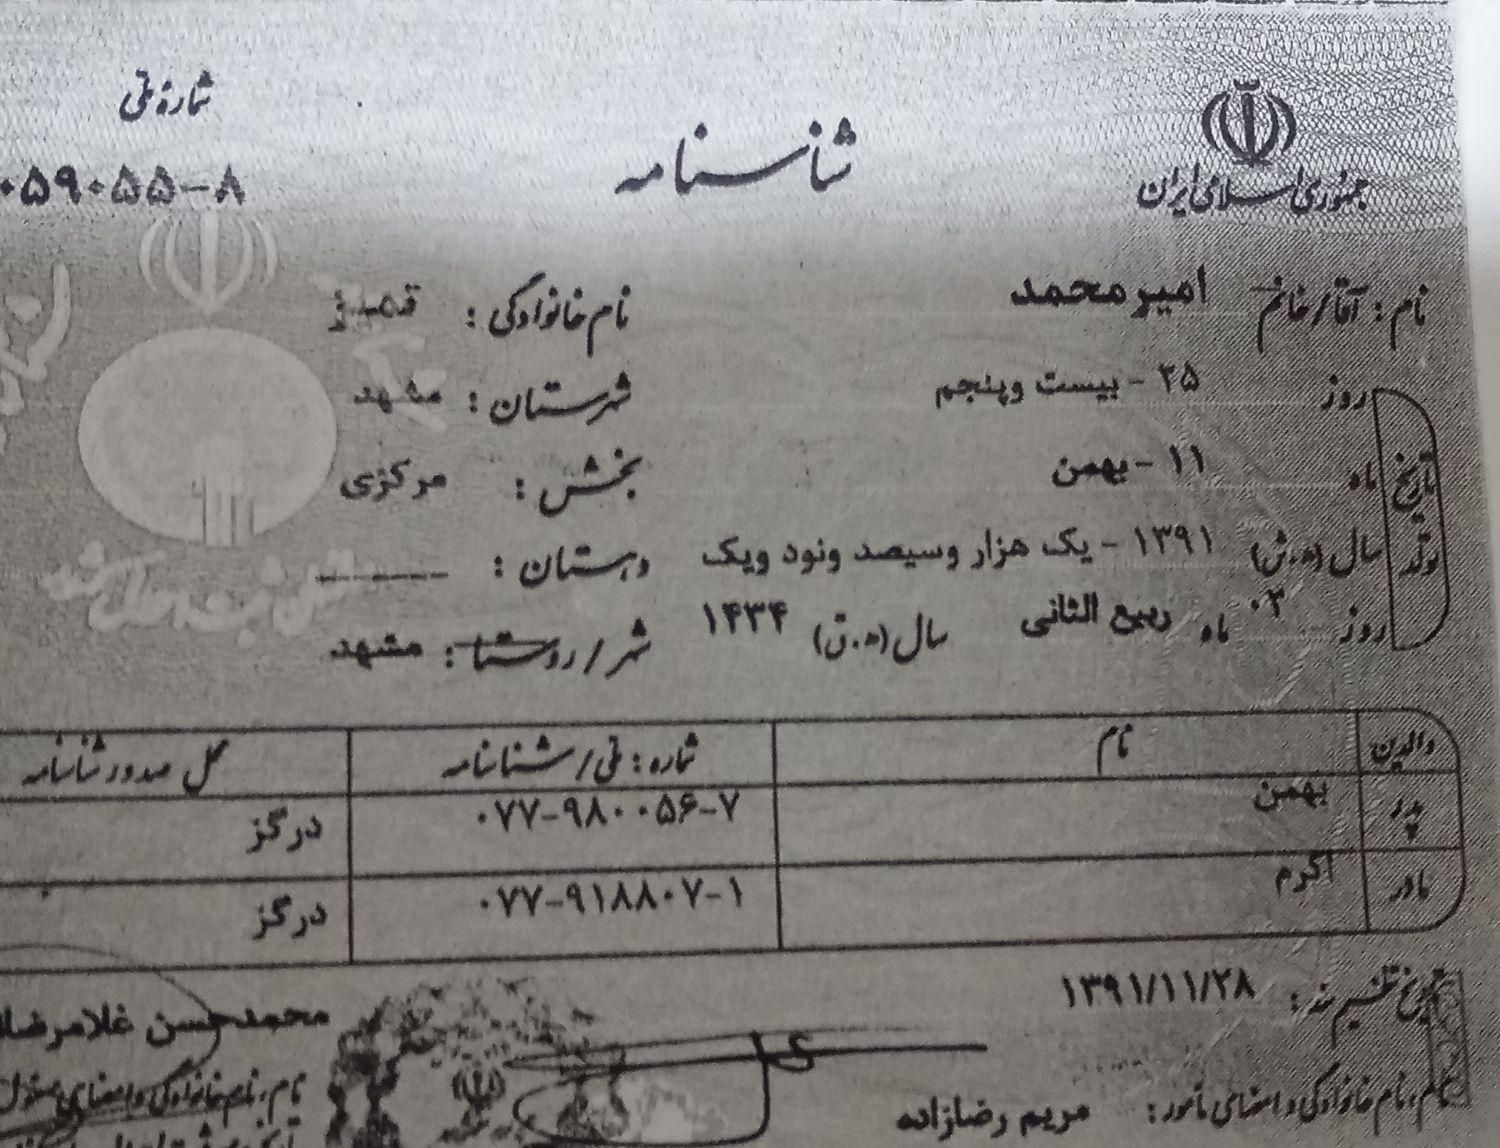 جمهوری اسلامی ایران
شناسنامه
شمارهٔ ملی
۰۵۹۰۵۵-۸
نام : آقا/خانم امیرمحمد
نام خانوادگی :
تاریخ تولد
روز ۲۵ - بیست وپنجم
شهرستان : مشهد
ماه ۱۱ - بهمن
بخش : مرکزی
سال (ه.ش) ۱۳۹۱ - یک هزار وسیصد ونود ویک
دهستان : --------
روز ۰۳ ماه ربیع الثانی سال (ه.ق) ۱۴۳۴
شهر/روستا : مشهد
والدین نام شماره : ملی/شناسنامه محل صدور شناسنامه
پدر بهمن ۰۷۷-۹۸۰۰۵۶-۷ درگز
مادر اکرم ۰۷۷-۹۱۸۸۰۷-۱ درگز
تاریخ تنظیم سند : ۱۳۹۱/۱۱/۲۸
محمدحسن
نام، نام خانوادگی و امضای مأمور : مریم رضازاده
نام، نام خانوادگی و امضای